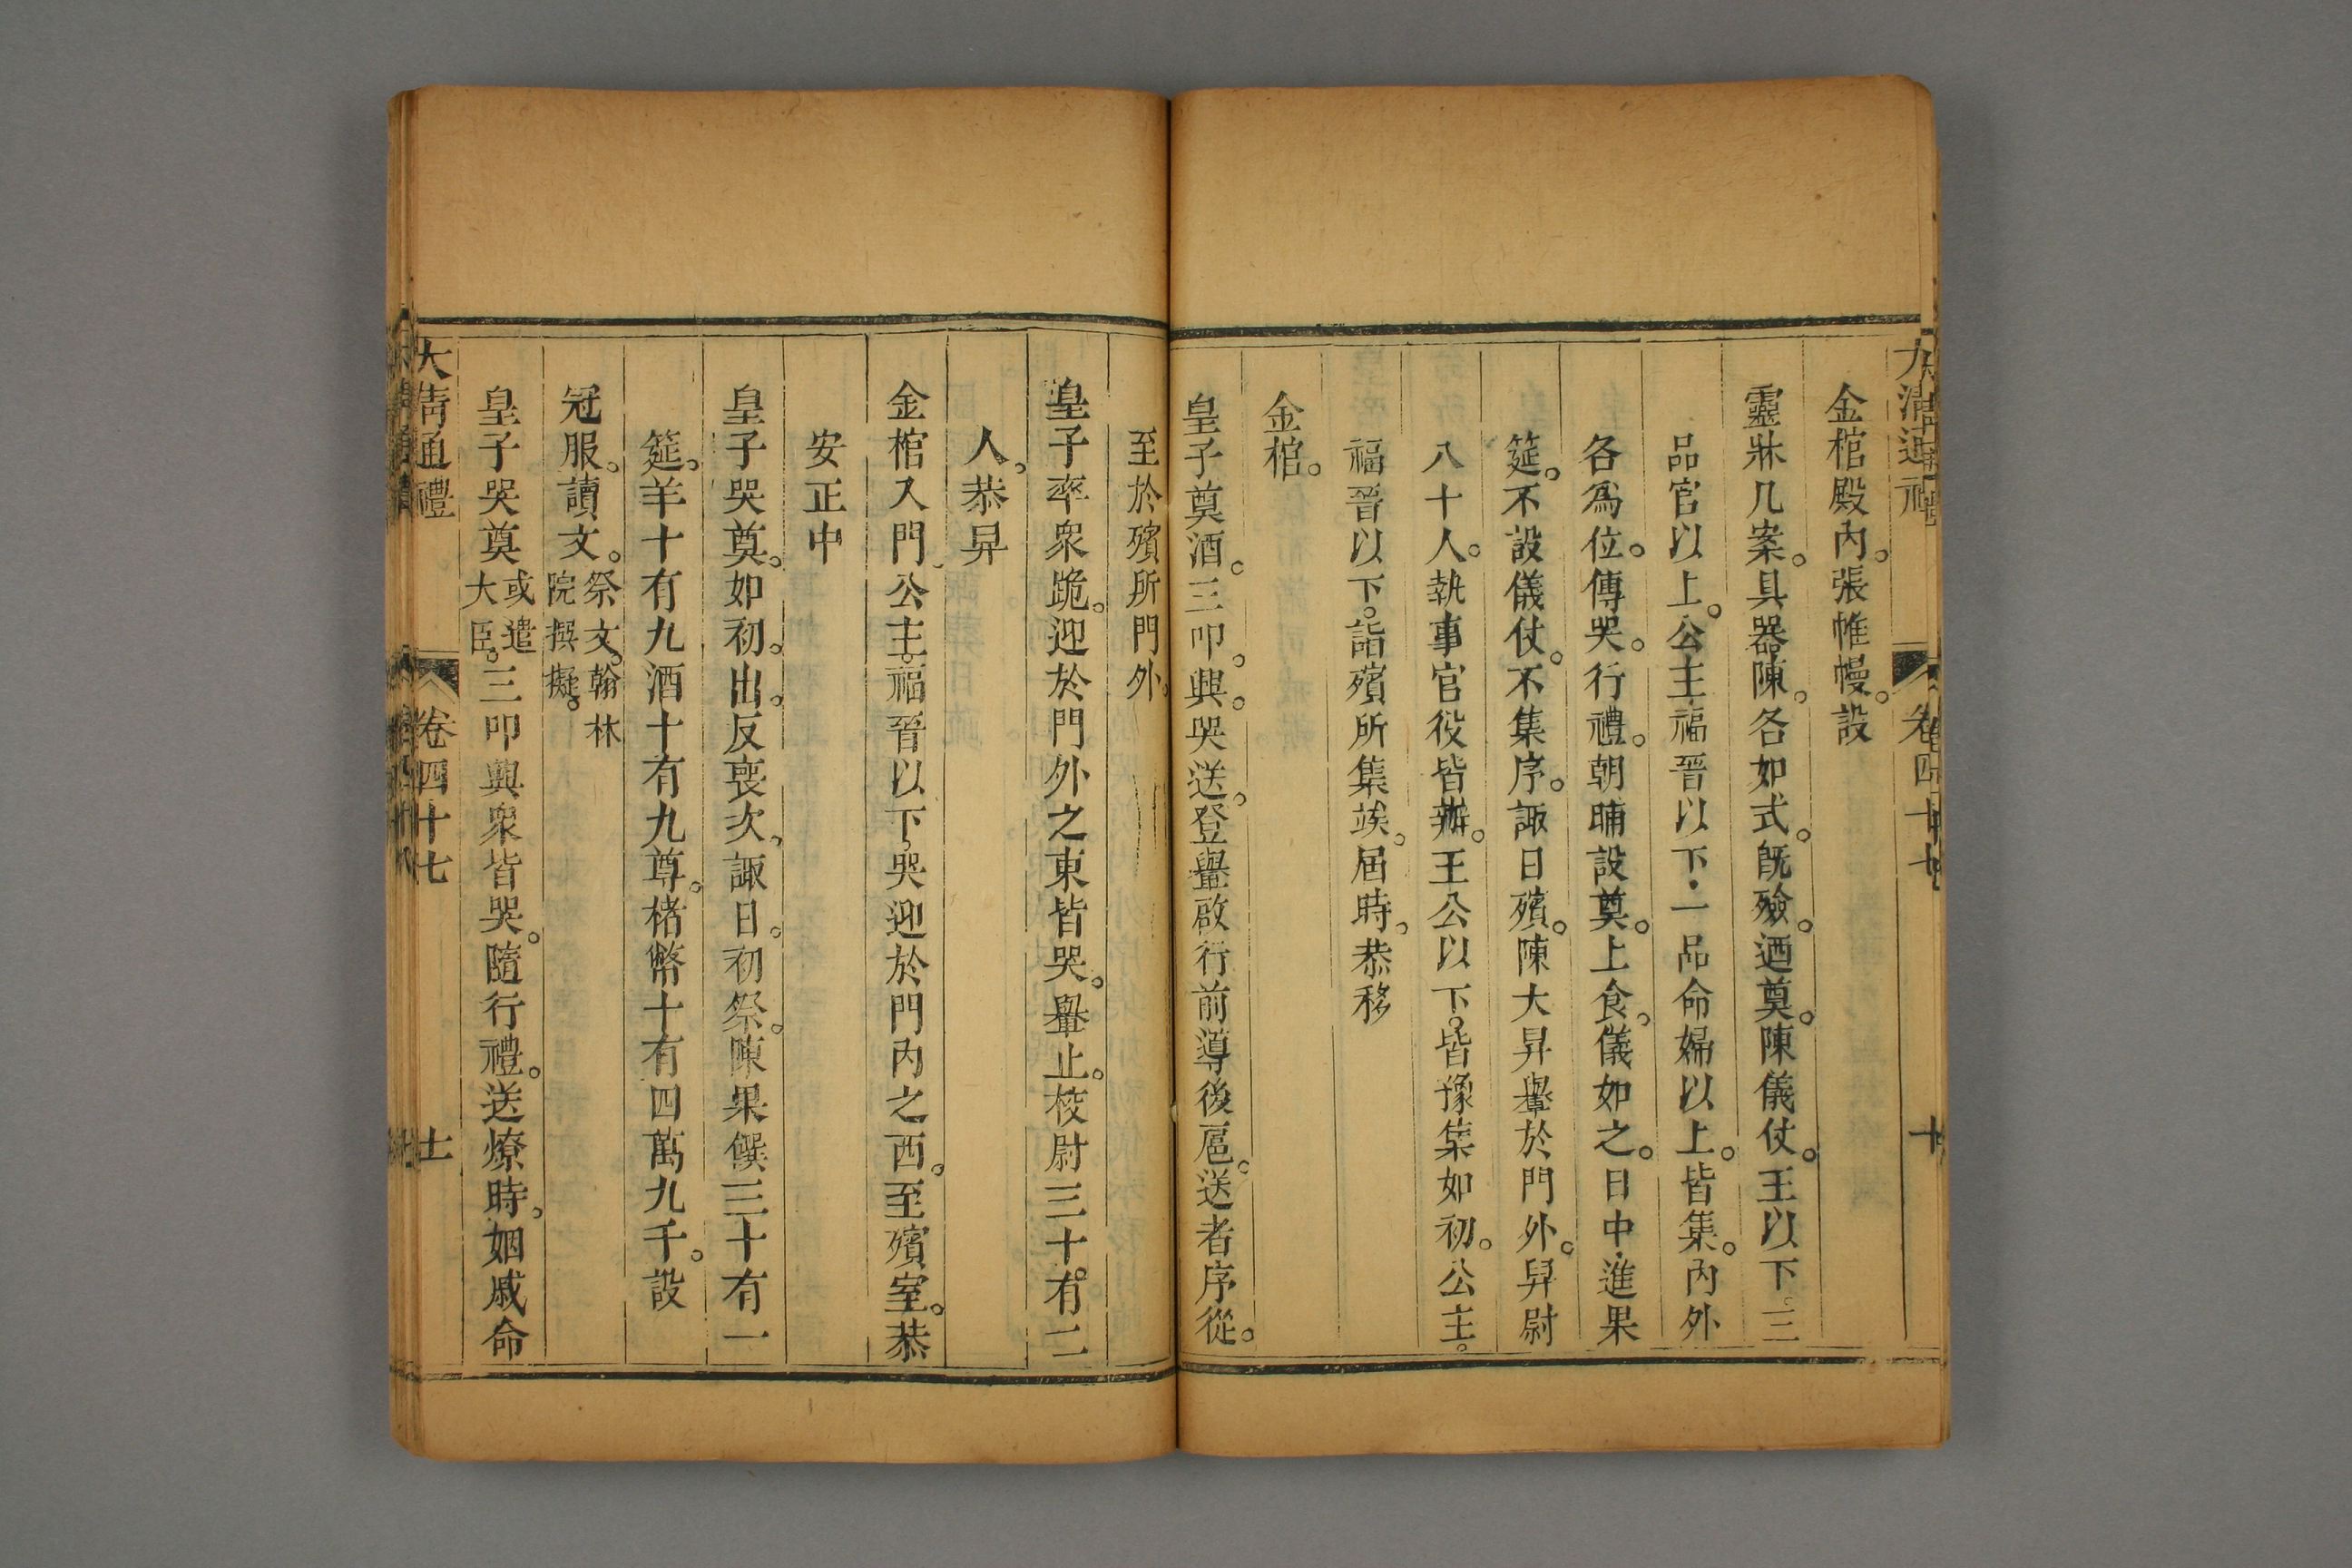 大清通禮 卷四十七 十
金棺殿內。張帷幔。設
靈牀几案。具器陳。各如式。旣殮。迺奠。陳儀仗。王以下。三
品官以上。公主福晉以下。一品命婦以上。皆集。內外
各爲位。傳哭。行禮。朝晡設奠。上食。儀如之。日中進果
筵。不設儀仗。不集序。諏日殯。陳大昇轝於門外。舁尉
八十人。執事官役皆辦。王公以下。皆豫集如初。公主。
福晉以下。詣殯所集竢。屆時。恭移
金棺。
皇子奠酒。三叩。興。哭送。登轝啟行。前導後扈。送者序從。
至於殯所門外。
皇子率衆跪。迎於門外之東皆哭。轝止。校尉三十有二
人。恭昇
金棺入門。公主。福晉以下。哭迎於門內之西。至殯室。恭
安正中
皇子哭奠。如初。出。反喪次。諏日。初祭。陳果饌三十有一
筵。羊十有九酒十有九尊。楮幣十有四萬九千。設
冠服。讀文。祭文。翰林院撰擬。
皇子哭奠或遣大臣。三叩興衆皆哭。隨行禮。送燎時。姻戚命
大清通禮 卷四十七 十一